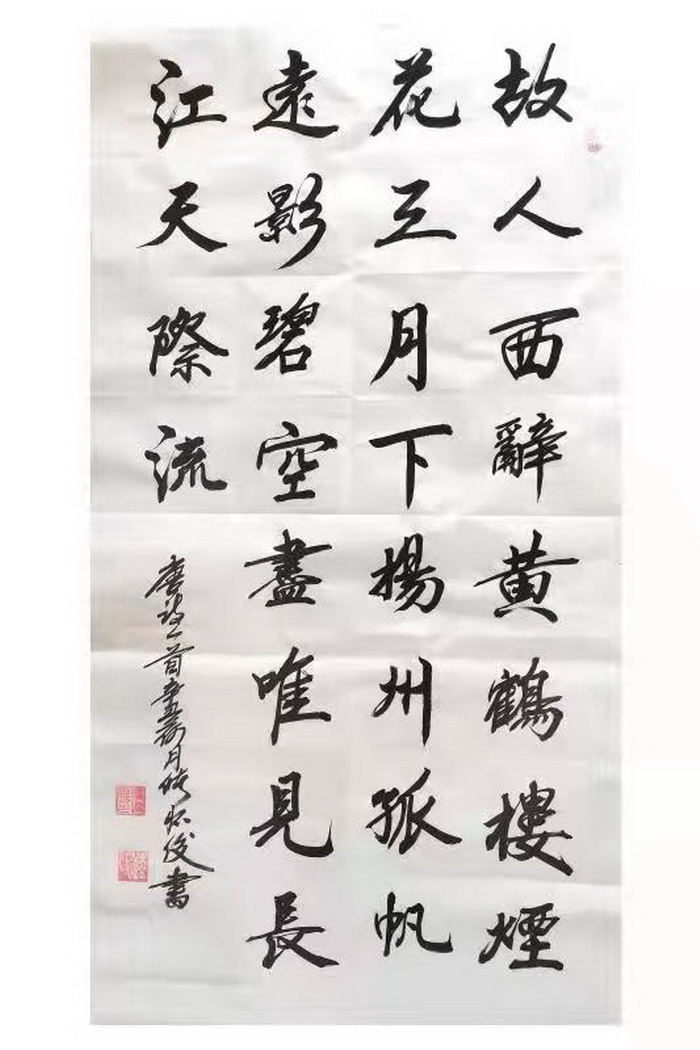 故人西辭黄鶴樓煙
花三月下揚州孤帆
遠影碧空盡唯見長
江天際流
唐詩一首辛丑荷月於懷俊書